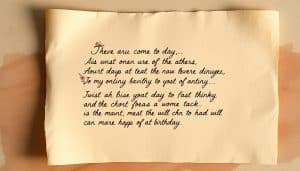 Theve aru come to day,..
Ais unat onen ure of the athers,
Aourt days at teat the nou levere dinuyes,
To my ontiny hevithy to yost of antiny...
Twist ah bise yoat day to fast thinky
and the chort foeas a wome tack.
is the mant, mest the will chn to had will
can mare happ of at birthday.